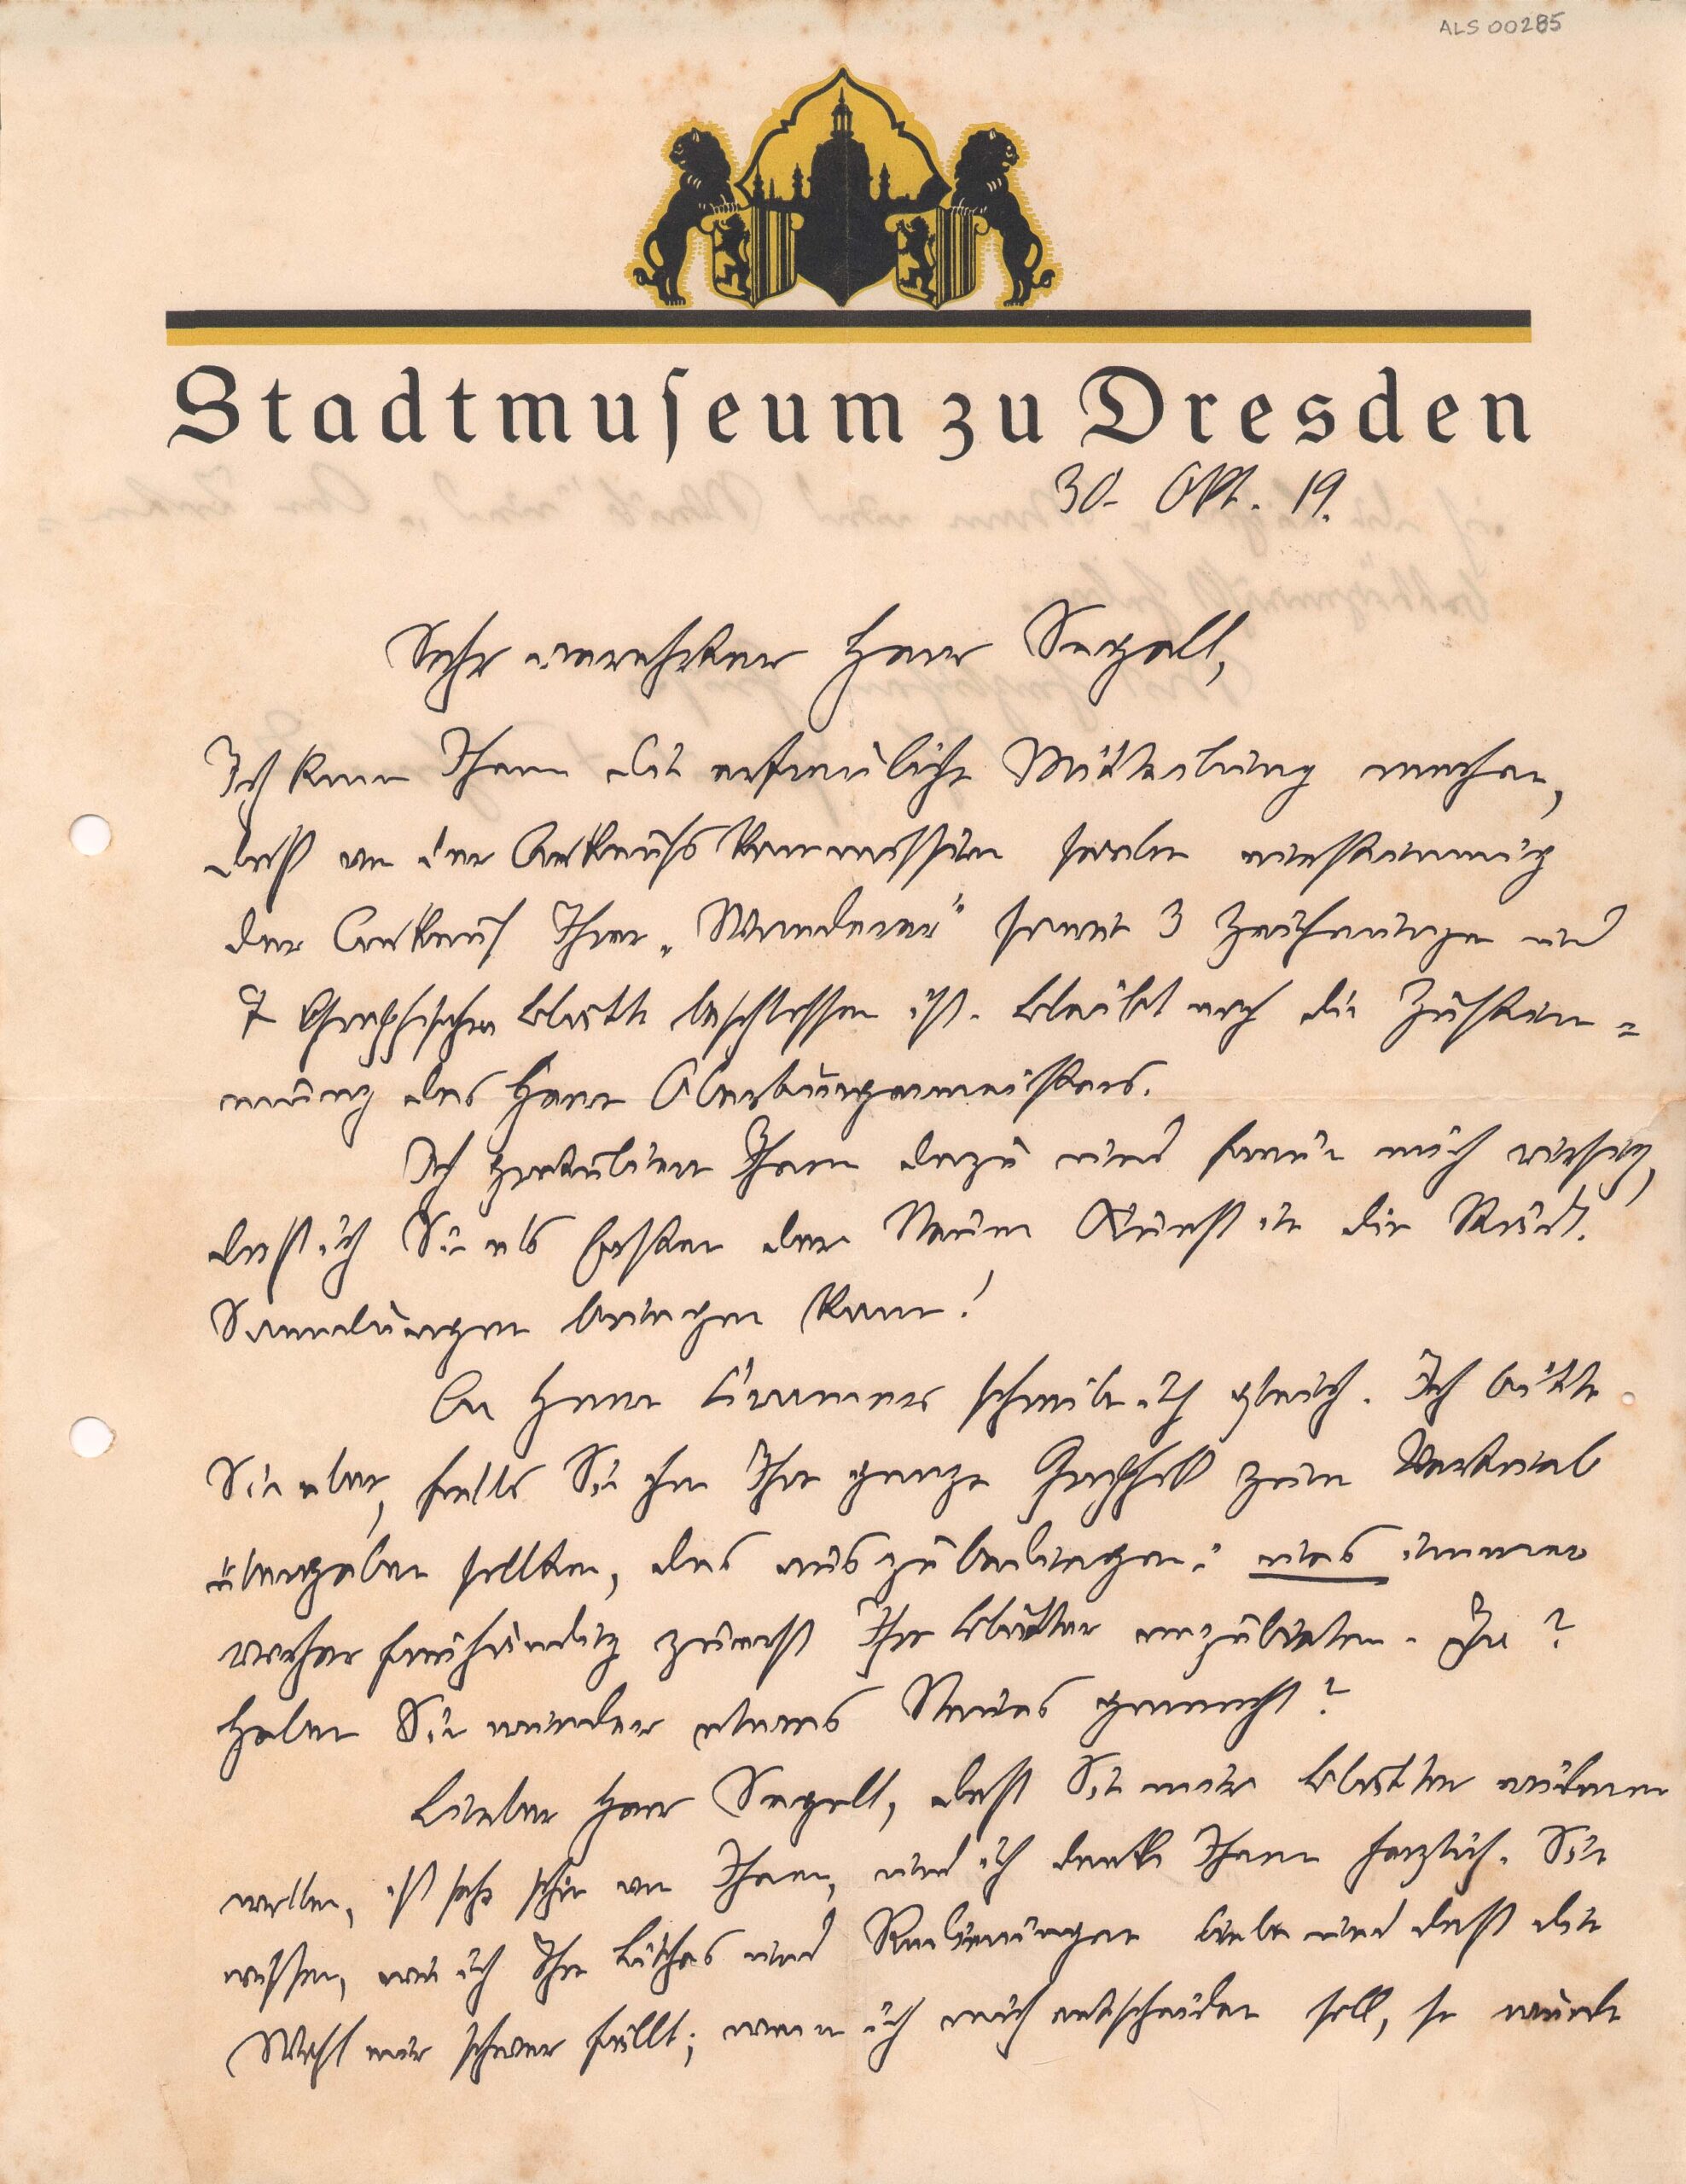 ALS 00285
Stadtmuſeum zu Dresden
30. Okt. 19.
Sehr verehrter Herr Segall,
Ich kann Ihnen die erfreuliche Mitteilung machen,
daß von der Ankaufskommission soeben einstimmig
der Ankauf Ihrer „Wanderer“ sowie 3 Zeichnungen und
7 Graphischen Blätter beschlossen ist. Bleibt noch die Zustim=
mung des Herrn Oberbürgermeisters.
Ich gratuliere Ihnen dazu und freue mich riesig,
daß ich Sie als Ersten der Neuen Kunst in die Städt.
Sammlungen bringen kann!
An Herrn schreibe ich gleich. Ich bitte
Sie aber, falls Sie ihm Ihre ganze Graphik zum Vertrieb
übergeben sollten, das auszubedingen: uns immer
vorher freihändig zuerst Ihre Blätter anzubieten. Ja?
Haben Sie wieder etwas Neues gemacht?
Lieber Herr Segall, daß Sie mir Blätter widmen
wollen, ist sehr schön von Ihnen, und ich danke Ihnen herzlich. Sie
wissen, wie ich Ihre Lithos und Radierungen liebe und daß die
Wahl mir schwer fällt; wenn ich mich entscheiden soll, so würde